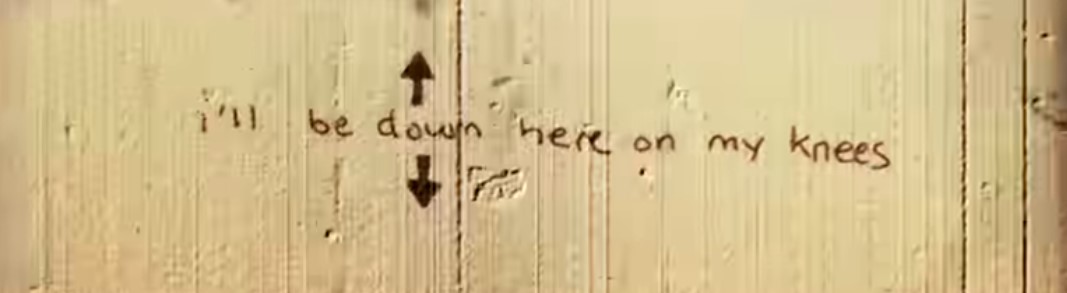 i'll be down here on my knees